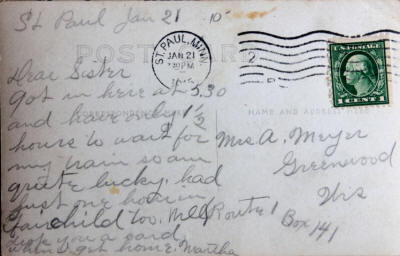 St Paul Jan 21 10
POSTCARD
ST. PAUL, MINN.
JAN 21
Dear Sister
Got in here at 5.30
and have only 1 1/2
hours to wait for
my train so am
quite lucky. had
just one hour in
Fairchild too. Will
you a card
when I get home. Martha
U.S. POSTAGE
1 CENT 1
NAME AND ADDRESS HERE
Mrs A. Meyer
Greenwood
Wis
Route 1
Box 141